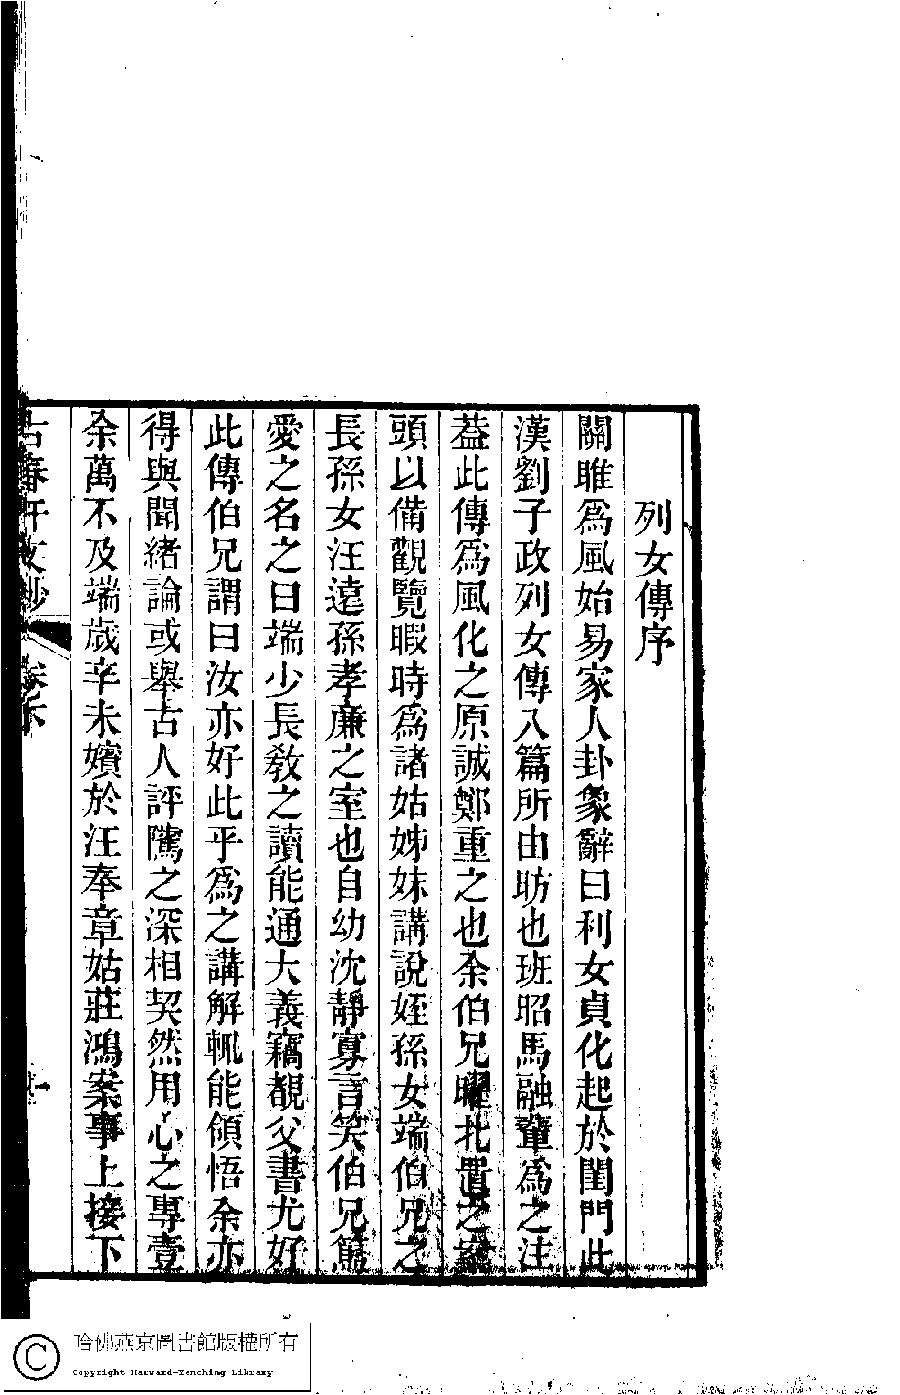 列女傳序
關雎爲風始易家人卦彖辭曰利女貞化起於閨門此
漢劉子政列女傳八篇所由昉也班昭馬融輩爲之注
葢此傳爲風化之原誠鄭重之也余伯兄曜北置之案
頭以備觀覽暇時爲諸姑姊妹講說姪孫女端伯兄之
長孫女汪遠孫孝廉之室也自幼沈靜寡言笑伯兄篤
愛之名之曰端少長敎之讀能通大義竊覩父書尤好
此傳伯兄謂曰汝亦好此乎爲之講解輒能領悟余亦
得與聞緒論或舉古人評隲之深相契然用心之專壹
余萬不及端歳辛未嬪於汪奉章姑莊鴻案事上接下
古春軒文鈔
卷下
哈佛燕京圖書館版權所有
Copyright Harvard-Yenching Library